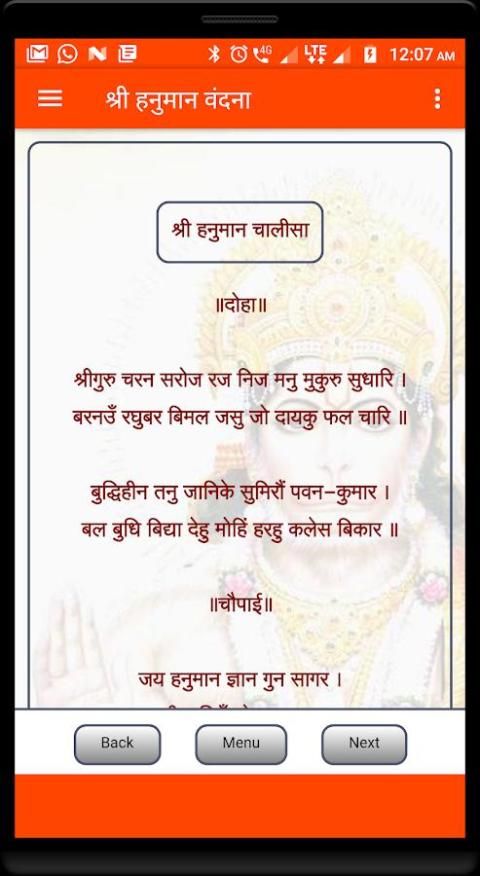 4G LTE 12:07 AM
श्री हनुमान वंदना
श्री हनुमान चालीसा
॥दोहा॥
श्रीगुरु चरन सरोज रज निज मनु मुकुरु सुधारि ।
बरनउँ रघुबर बिमल जसु जो दायकु फल चारि ॥
बुद्धिहीन तनु जानिके सुमिरौं पवन–कुमार ।
बल बुधि बिद्या देहु मोहिं हरहु कलेस बिकार ॥
॥चौपाई॥
जय हनुमान ज्ञान गुन सागर ।
Back Menu Next